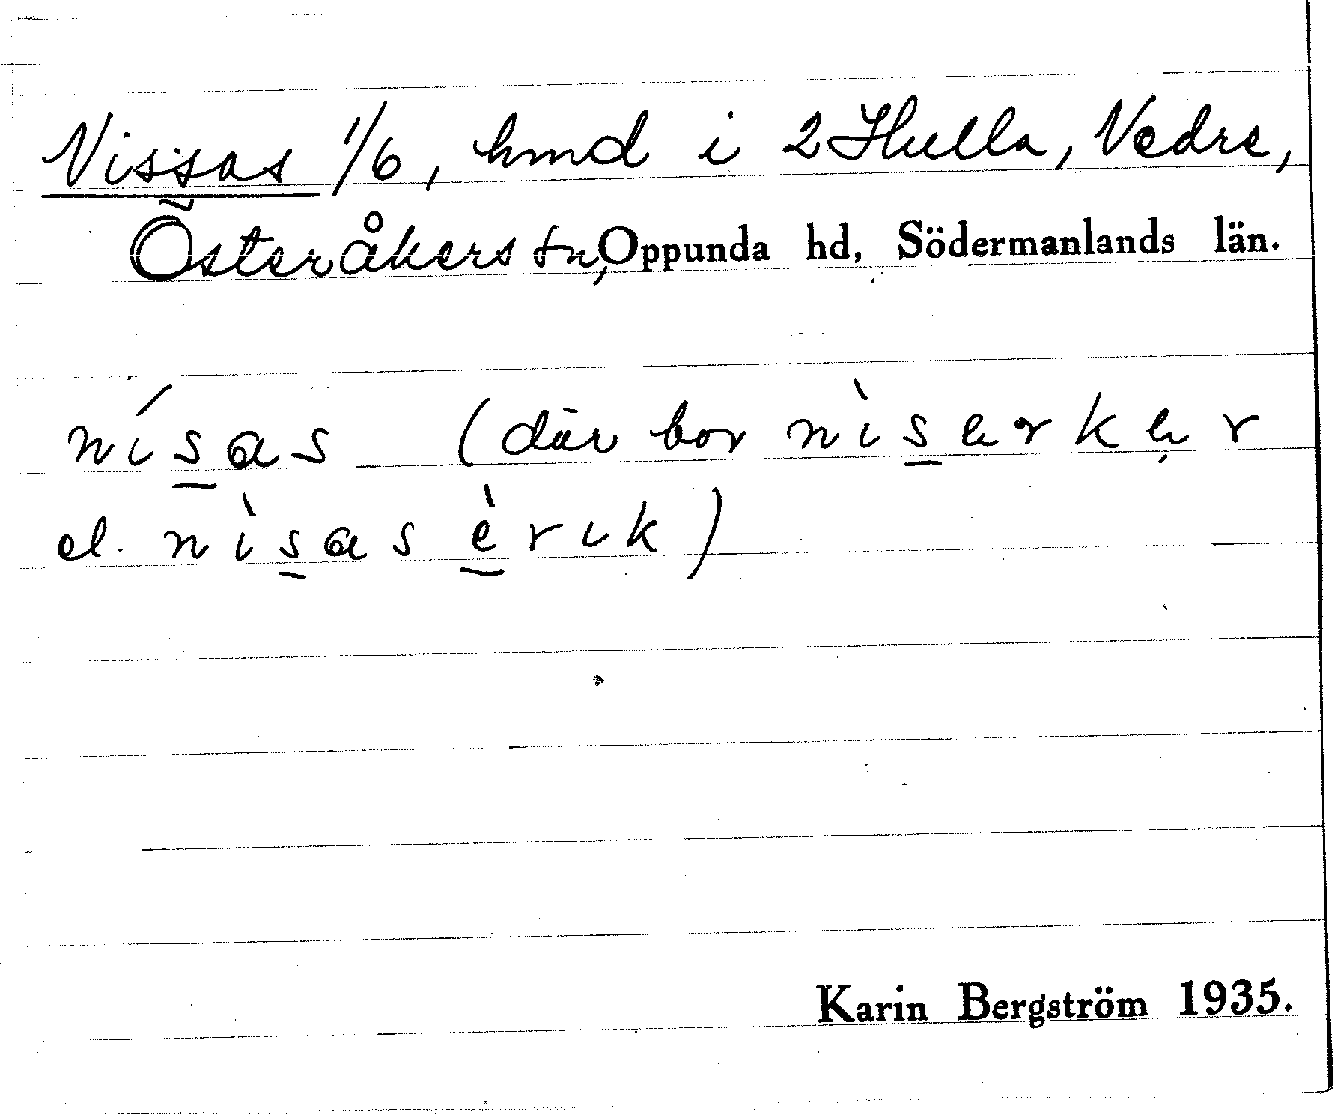 Nissas 1/6, hmd i 2 Hulla, Vedre,
Österåkers sn, Oppunda hd, Södermanlands län.
nísas (där bor nìsərkər
el. nìsas èrik)
Karin Bergström 1935.